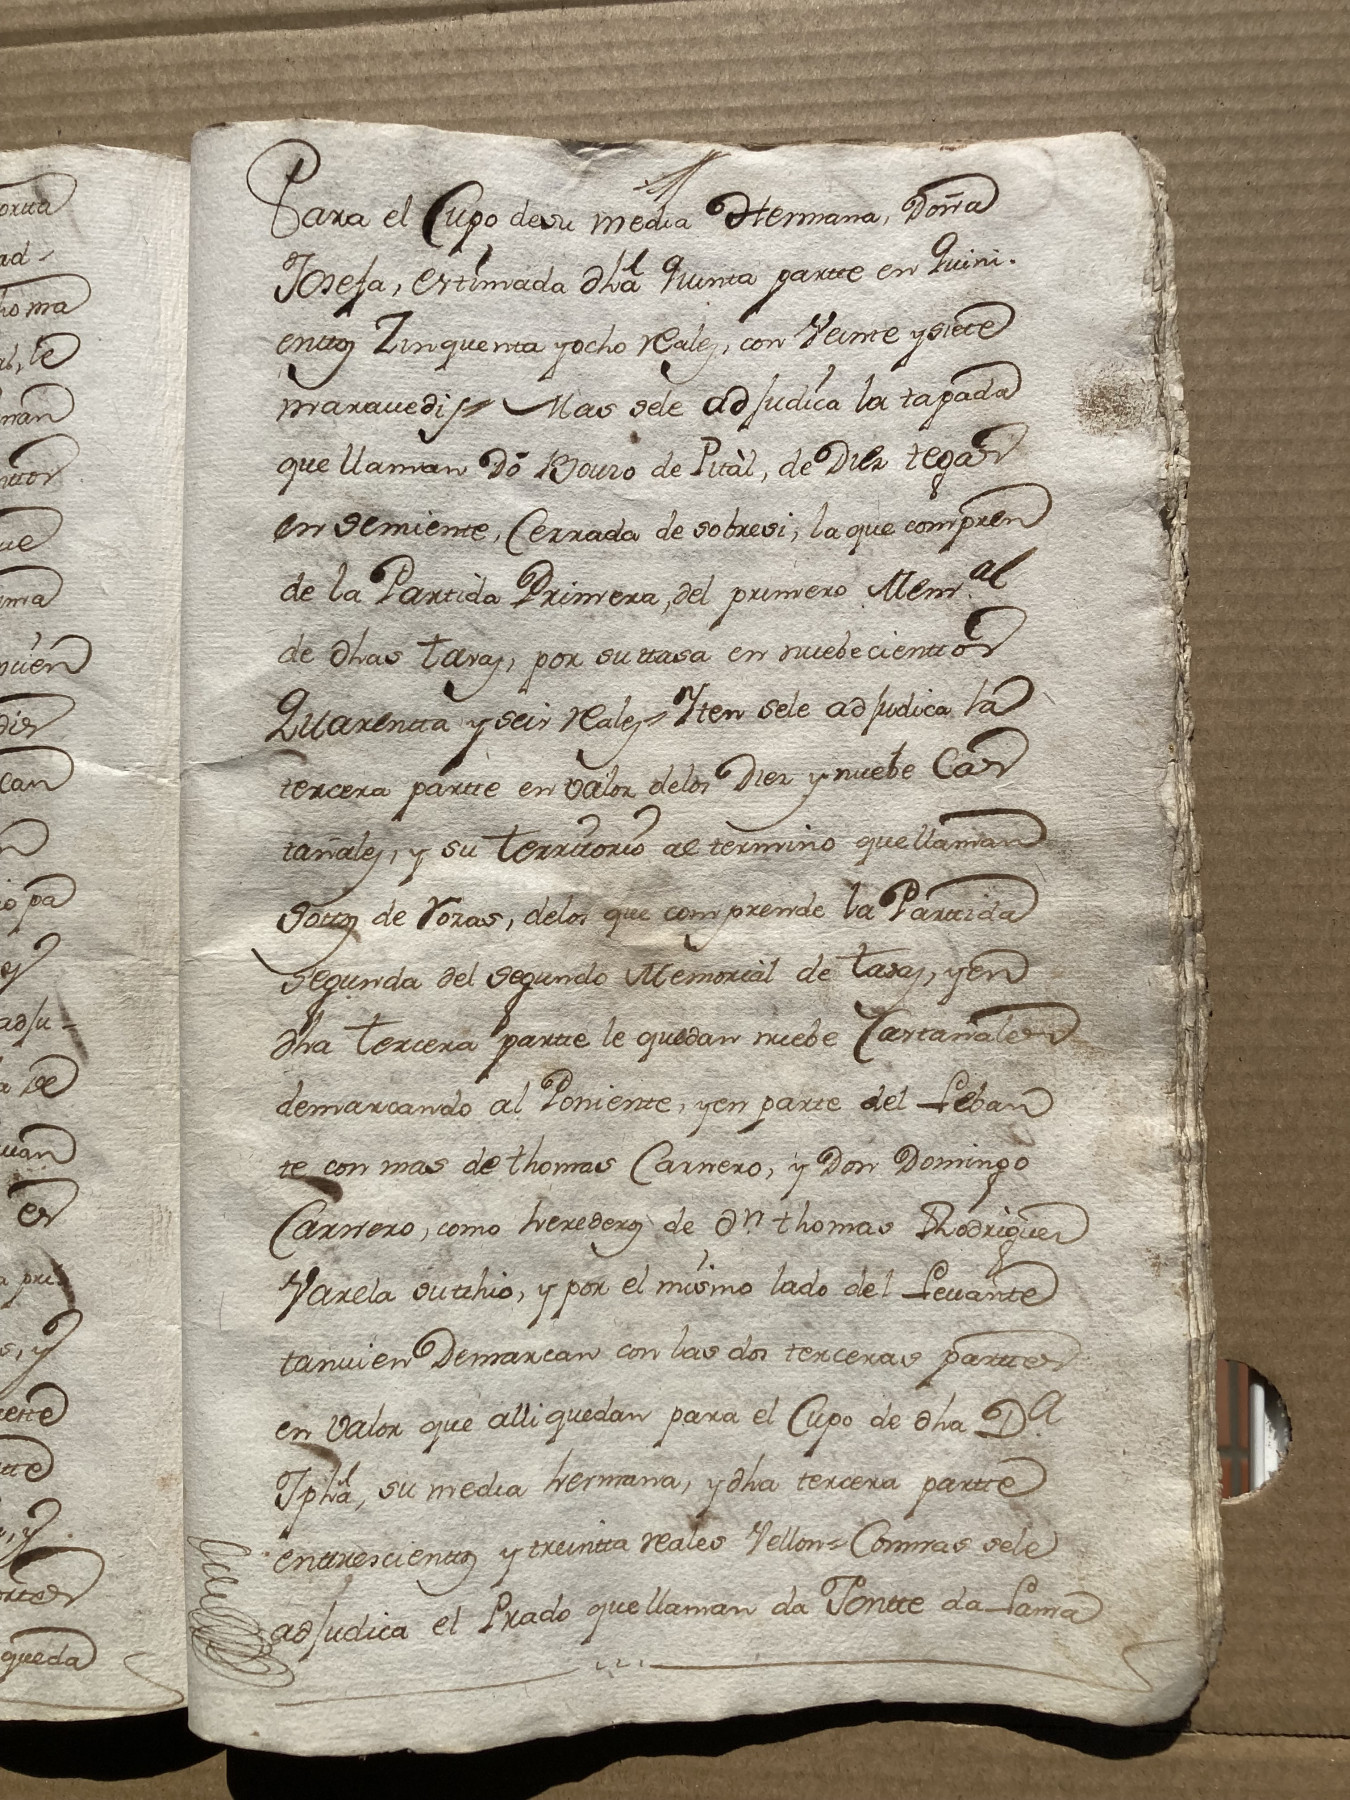 Para el Cupo desu media Hermana, Doña
Josefa, estimada dhã Quinta partte en Quini-
enttos Zinquenta y ocho reales, con Veinte y siete
maravedis // Mas sele adjudica la tapada
que llaman Dô Bouro de Pitàl, de Diez tegas
en semiente, Cerrada de sobresi, la que compren
de la Partida Primera, del primero Mem.al
de dhas tasas, por su ttasa en nuebecienttos
Quarentta y seis reales // Yten sele adjudica la
tercera partte en valor delos Diez y nuebe Cas
tañales, y su territorio al termino que llaman
Sotto de Vozas, delos que comprende la Parttida
segunda del segundo Memorial de tasas, y en
dha tercera partte le quedan nuebe Castañales
demarcando al Poniente, y en parte del Leban
te con mas de thomas Carnero, y Don Domingo
Carnero, como herederos de dn. thomas Rhodriguez
Varela su tthio, y por el mismo lado del Levante
tanvien Demarcan con las dos terceras parttes
en valor que alli quedan para el Cupo de dha D.a
Jphã, su media hermana, y dha tercera partte
en ttrescienttos y treintta reales Vellon = Con mas sele
adjudica el Prado que llaman da Pontte da Lama